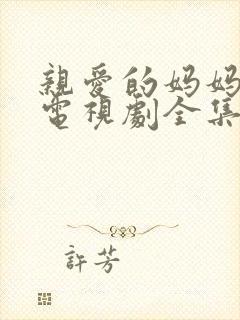 親愛的妈妈
電視劇全集
許芳